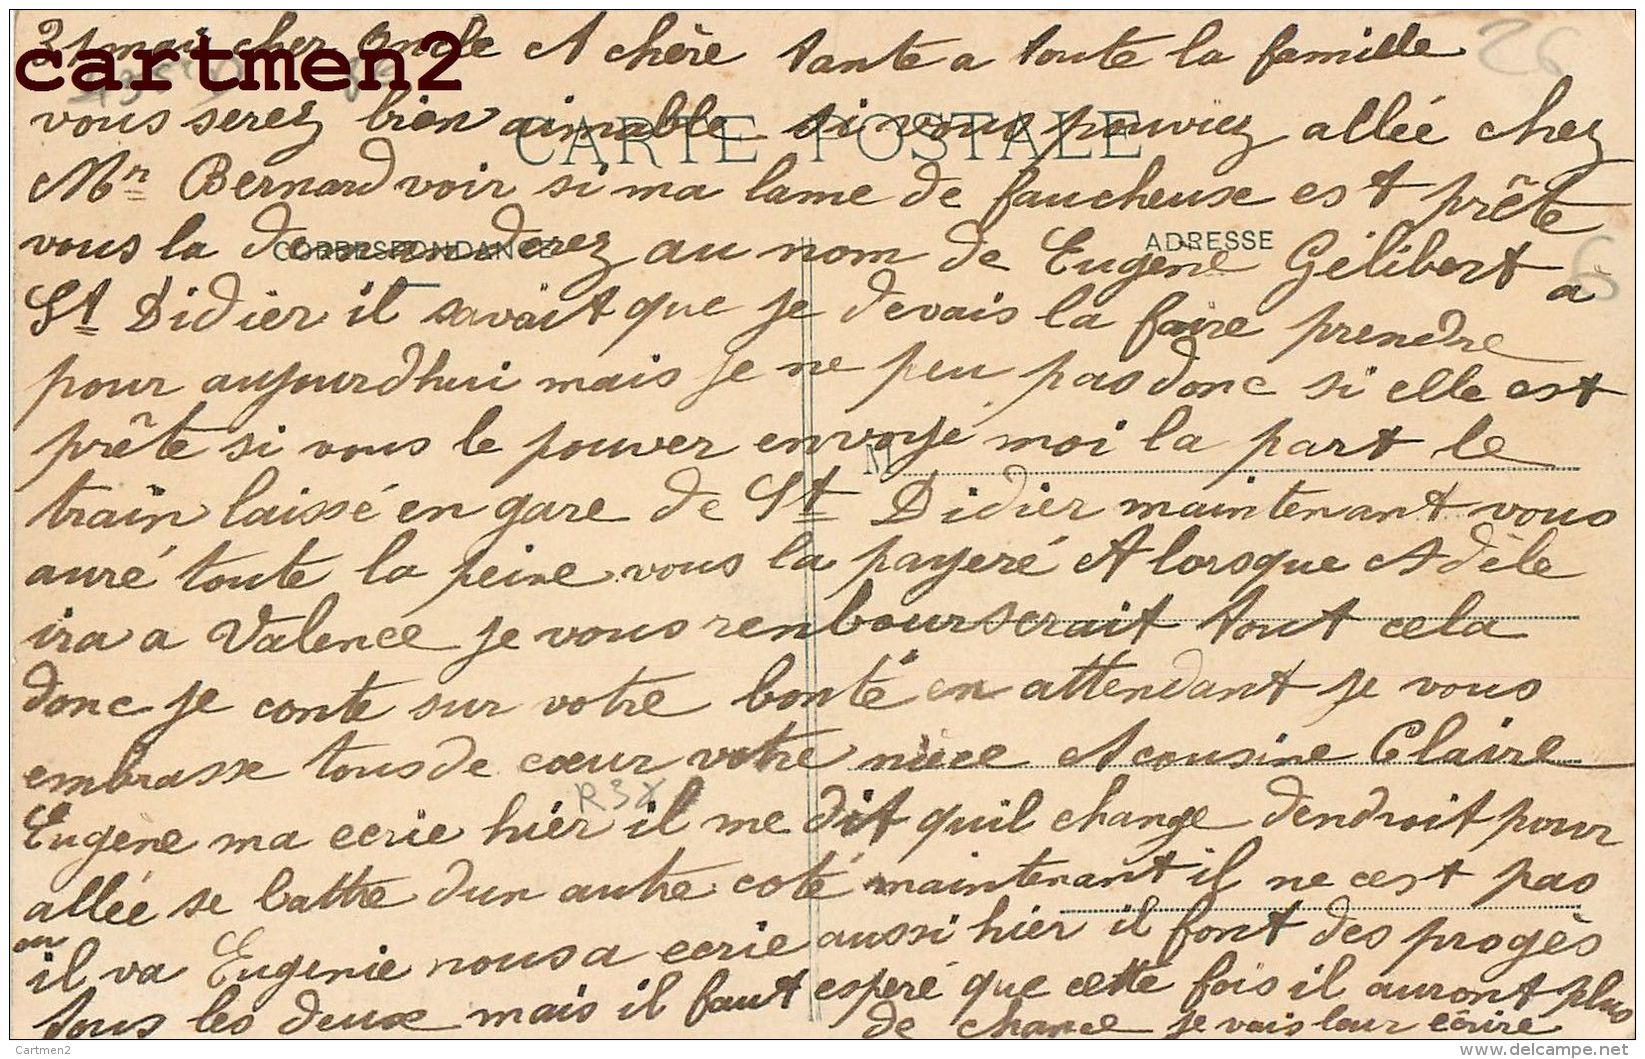 31 mai cher Oncle et chère tante a toute la famille
cartmen2
26
CARTE POSTALE
vous serez bien aimable si vous pouviez allée chez
Mr Bernard voir si ma lame de faucheuse est prête
CORRESPONDANCE
ADRESSE
vous la demanderez au nom de Eugène Gélibert a
6
St Didier il savait que je devais la faire prendre
pour aujourdhui mais je ne peu pas donc si elle est
prête si vous le pouver envoyé moi la part le
M
train laissé en gare de St Didier maintenant vous
auré toute la peine vous la payeré et lorsque Adèle
ira a Valence je vous renbourserait tout cela
donc je conte sur votre bonté en attendant je vous
embrasse tous de cœur votre nièce et cousine Claire
R3X
Eugène ma ecrie hièr il me dit quil change dendroit pour
allée se battre dun autre coté maintenant il ne cest pas
ou
il va Eugenie nous a ecrie aussi hièr il font des progès
tous les deux mais il faut esperé que cette fois il auront plus
de chance je vais leur écrire
Cartmen2
www.delcampe.net